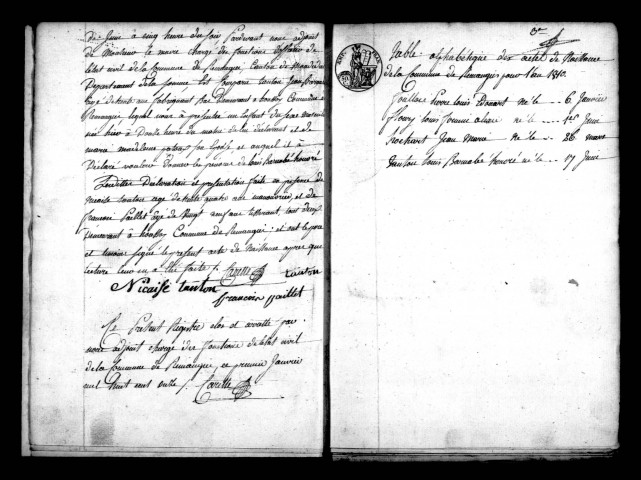 De Juin à cinq heure du soir Pardevant nous adjoint
de Monsieur le maire chargé des fonctions d'officier de
l'état civil de la Commune de Remaugies Canton de
Département de la Somme est comparu tanton Jean
agé de trente ans fabriquant Bas Demeurant à Commune de
Remaugies lequel nous a présenté un Enfant du sexe masculin
née hier à Douze heure du matin de lui Déclarant et de
maria madelenne son Epouse et auquel il a
Déclaré vouloir Donner les prénoms de Louis Barnabé honoré
Lesdittes Déclaration et présentation faite en présence de
Nicaise tanton agé de trente quatre ans manouvrier, et de
françois Paillet âgé de Vingt ans tisserant, tout deux
Demeurant à Commune de Remaugies et ont le père
et temoins signé le présent acte de Naissance apres que
lecture leur en a été faite /. Carette
tanton
Nicaise tanton
francois paillet
Ce Présent Registre clos et arretté par
nous adjoint chargé des fonctions de l'état civil
de la Commune de Remaugies, ce premier Janvier
mil huit cent onze /. Carette
Table alphabétique des actes de Naissance
de la Commune de Remaugies pour l'an 1810.
Pierre Louis né le .. 6. Janvier
fleury né le .. 1er Juin
Jean Marie né le .. 28 mars
tanton Louis Barnabé honoré né le .. 17 Juin